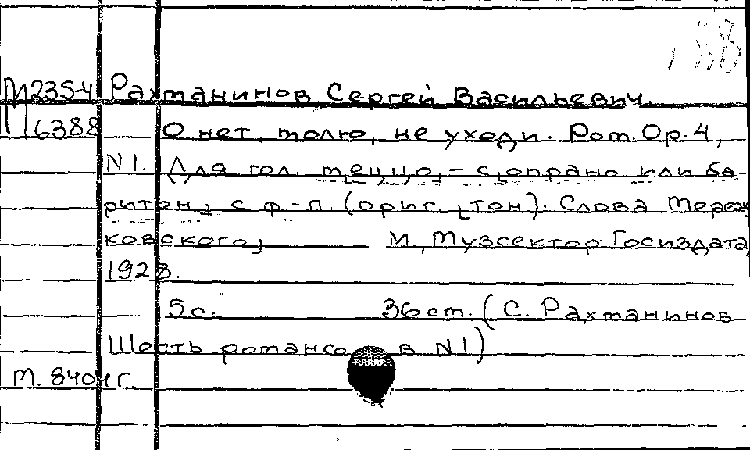 М2354 Рахманинов Сергей Васильевич.
М6388 О нет, молю, не уходи. Ром. Ор. 4,
N 1. Для гол. меццо-сопрано или ба-
ритон, с ф.-п. (ориг. тон). Слова Мереж
ковского, М., Музсектор Госиздата,
1928.
5 с. 36 ст. (С. Рахманинов
Шесть романсов N 1)
М. 8404 г.